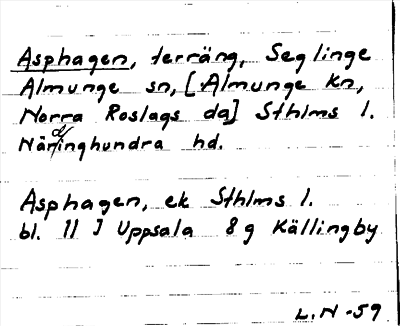 Asphagen, terräng, Seglinge
Almunge sn, [Almunge kn,
Norra Roslags dg] Sthlms l.
Närdinghundra hd.
Asphagen, ek Sthlms l.
bl. 11 J Uppsala 8 g Källingby
L.N -59